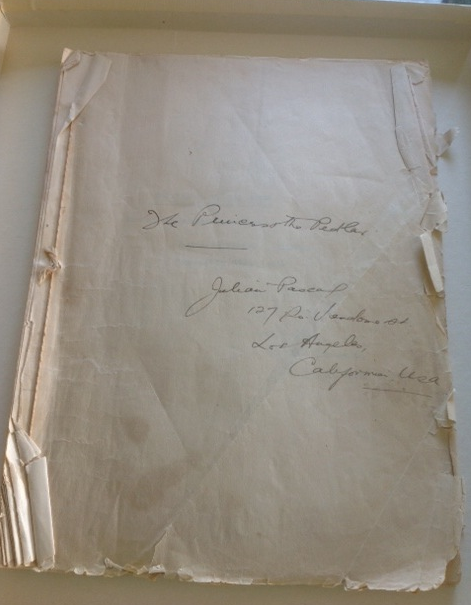 The Princess & the Pedlar
Julian Pascal
127 So. Vendome St
Los Angeles,
California. USA